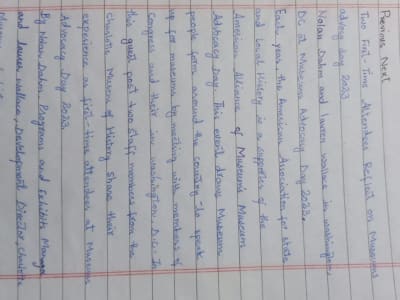 Previous Next
Two First-Time Attendees Reflect on Museums
advocy day 2023
Nolan Dahm and Lauren wallace in washington,
DC at Museums Advocacy Day 2023.
Each year, the American Association for state
and Local History is a supporter of the
American Alliance of Museums Museum
Advocacy Day. This event draws Museum
people form around the country to speak
up for museums by meeting with members of
Congress and their in washington, D.C. In
this guest post two staff members from the
Charlotte Museum of History Share their
experience as first-time attendees at Museums
Advocacy Day 2023.
By Nolan Dahm, Programs and Exhibits Manager
and Lauren wallace, Development Director, Charlotte